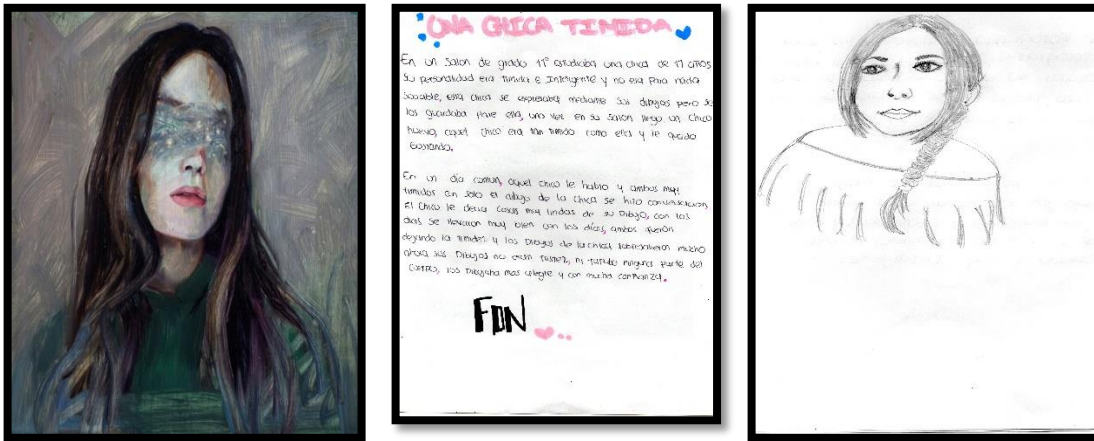 UNA CHICA TIMIDA
En un salon de grado 11° estudiaba una chica de 17 años
su personalidad era timida e inteligente y no era para nada
sociable, esta chica se expresaba mediante sus dibujos pero se
los guardaba para ella, una vez en su salon llego un chico
nuevo, aquel chico era tan timido como ella y le quedo
gustando.
En un día comun, aquel chico le hablo y ambos muy
timidos con solo el dibujo de la chica se hizo conversacion,
El chico le decia cosas muy lindas de su Dibujo, con los
dias se llevaron muy bien con los días, ambos fueron
dejando la timidez y los Dibujos de la chica mucho
ahora sus Dibujos no eran tristes, ni tapaba ninguna parte del
cuerpo, los Dibujaba mas alegre y con mucha confianza.
FDN